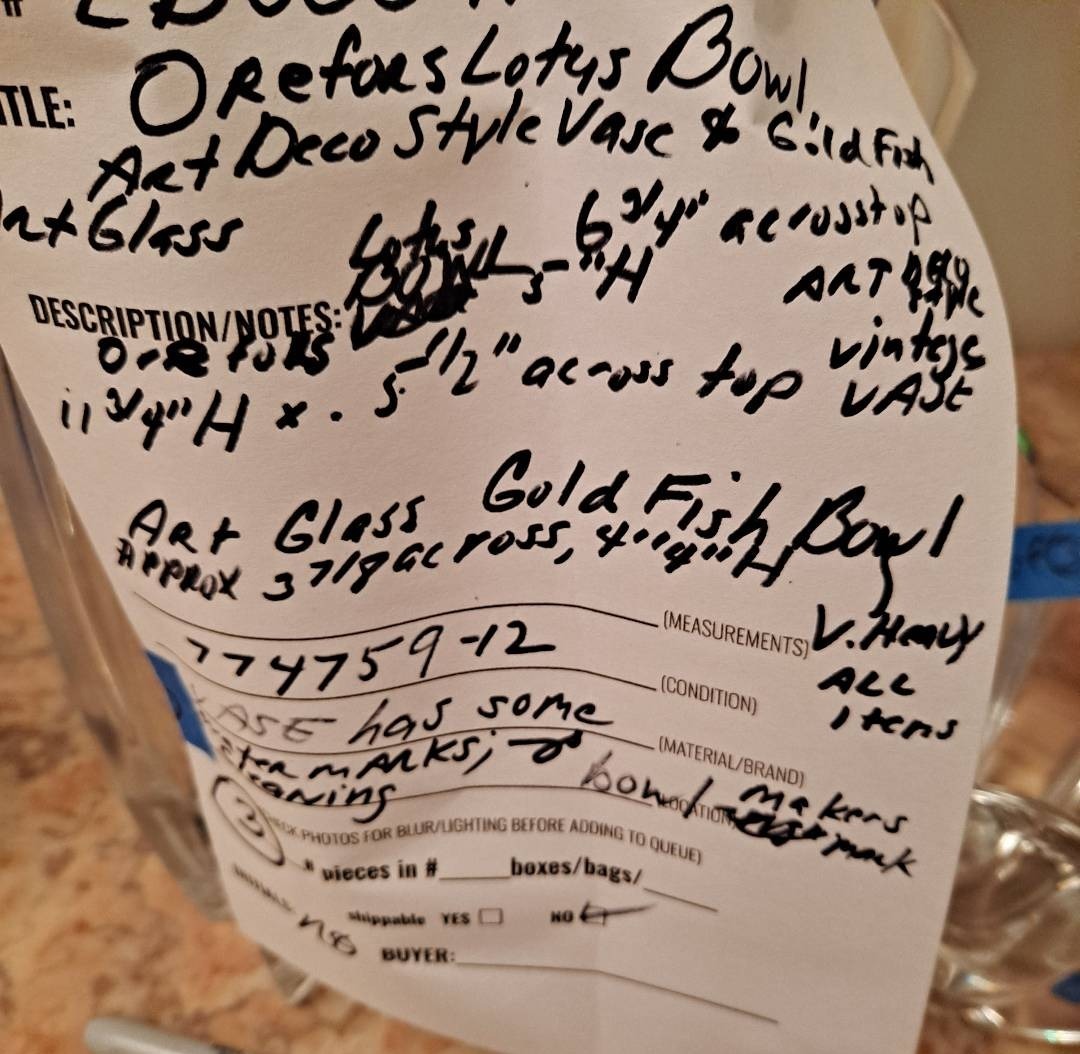 TLE: Orefors Lotus Bowl,
Art Deco Style Vase & Gold Fish
Art Glass
Lotus 6 3/4" across top
DESCRIPTION/NOTES: Bowl 5-"H ART Deco
style
Orefors 5-1/2" across top vintage
11 3/4"H x . VASE
Art Glass Gold Fish Bowl
Approx 3 7/8 across, 4""H
(MEASUREMENTS) V. Heavy
774759-12 (CONDITION) ALL
items
VASE has some (MATERIAL/BRAND)
water MARKS; bowl makers
mark
(3) CK PHOTOS FOR BLUR/LIGHTING BEFORE ADDING TO QUEUE)
# pieces in #______ boxes/bags/______
shippable YES ☐ NO
BUYER: